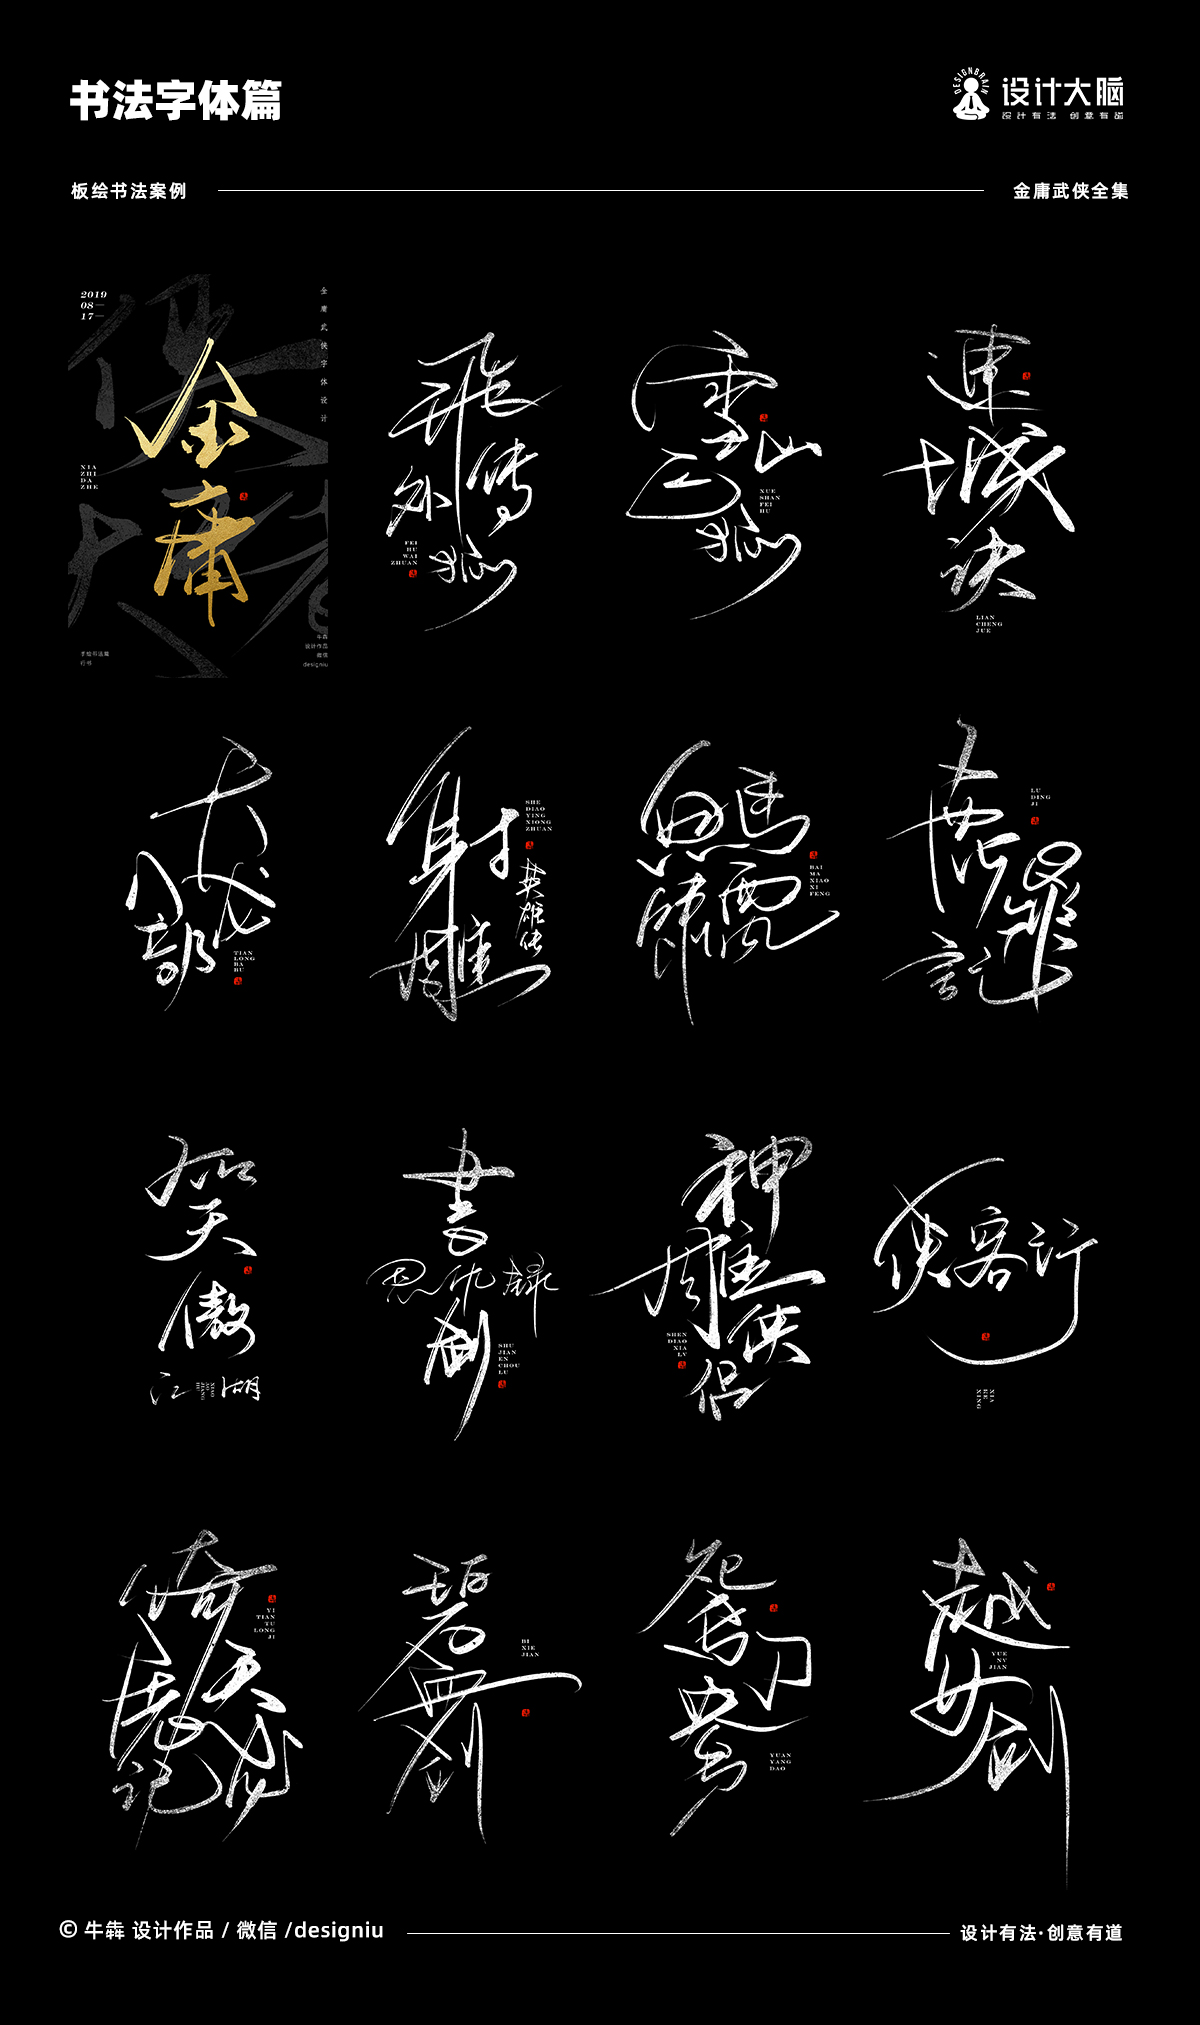 书法字体篇
DESIGNBRAIN
设计大脑
设计有法 创意有道
板绘书法案例
金庸武侠全集
2019
08—
17—
金庸武侠字体设计
金庸
XIA
ZHI
DA
ZHE
手绘书法篇
行书
牛犇
设计作品
微信
designiu
飛狐外传
FEI
HU
WAI
ZHUAN
雪山飞狐
XUE
SHAN
FEI
HU
連城诀
LIAN
CHENG
JUE
天龙八部
TIAN
LONG
BA
BU
射雕英雄传
SHE
DIAO
YING
XIONG
ZHUAN
BAI
MA
XIAO
XI
FENG
鹿鼎記
LU
DING
JI
笑天傲
江湖
書剑恩仇録
SHU
JIAN
EN
CHOU
LU
神雕侠侣
SHEN
DIAO
XIA
LV
侠客行
XIA
KE
XING
倚天屠龙記
YI
TIAN
TU
LONG
JI
碧血剑
BI
XIE
JIAN
鸳鸯刀
YUAN
YANG
DAO
越女剑
YUE
NV
JIAN
© 牛犇 设计作品 / 微信 /designiu
设计有法·创意有道